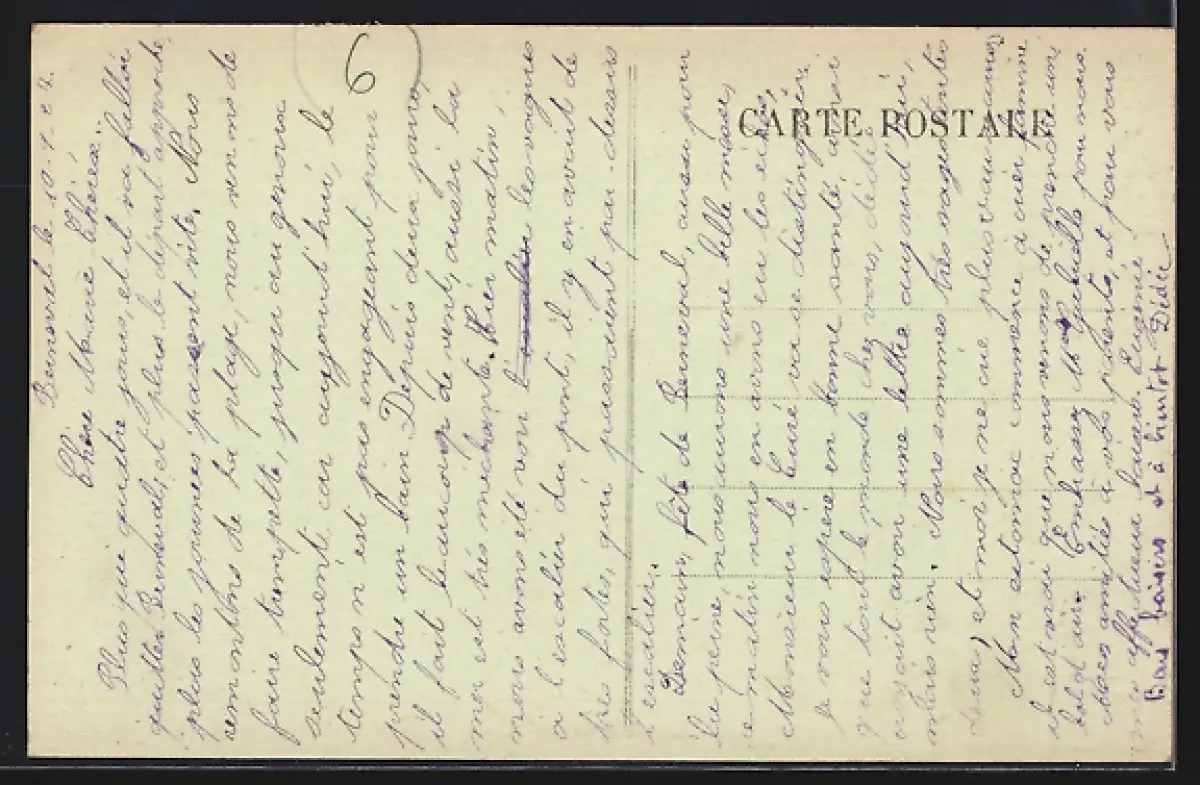 CARTE POSTALE
6
Benerville 10-9-27.
Chère Mémé Chérie.
Plus que quatre jours, et il va falloir
quitter Bernard; et plus le départ approche,
plus les journées passent vite. Nous
remontons de la plage, nous venons de
faire trempette, jusqu'au genoux
seulement car aujourd'hui, le
temps n'est pas engageant pour
prendre un bain. Depuis deux jours,
il fait beaucoup de vent, aussi la
mer est très méchante. Hier matin,
nous avons été voir les vagues
a l'escalier du pont, il y en avait de
très fortes, qui passaient par-dessus
l'escalier.
Demain, fête de aussi pour
la peine, nous aurons une belle messe,
ce matin nous en avons eu les échos,
Monsieur le Curé va se distinguer.
Je vous espère en bonne santé, ainsi
que tout le monde chez vous, dédé
croyait avoir une lettre aujourd'hui,
mais rien. Nous sommes très sages toutes
deux, et moi je ne suis plus
Mon estomac commence à crier famine
il est vrai que nous venons de prendre un
bol d'air. Embrassez pour nous.
Mes amitiés à vos parents, et pour vous
mes affectueux baisers. Eugénie
Bons baisers et à bientôt Dédée